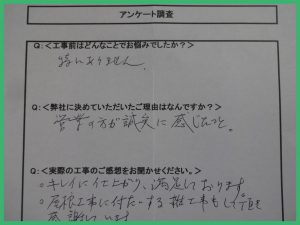 アンケート調査
Q:＜工事前はどんなことでお悩みでしたか？＞
特にありません。
Q:＜弊社に決めていただいたご理由はなんですか？＞
営業の方が誠実に感じたこと。
Q:＜実際の工事のご感想をお聞かせください。＞
○キレイに仕上がり、満足しております
○屋根工事に付たいする雑工事も
感謝しています